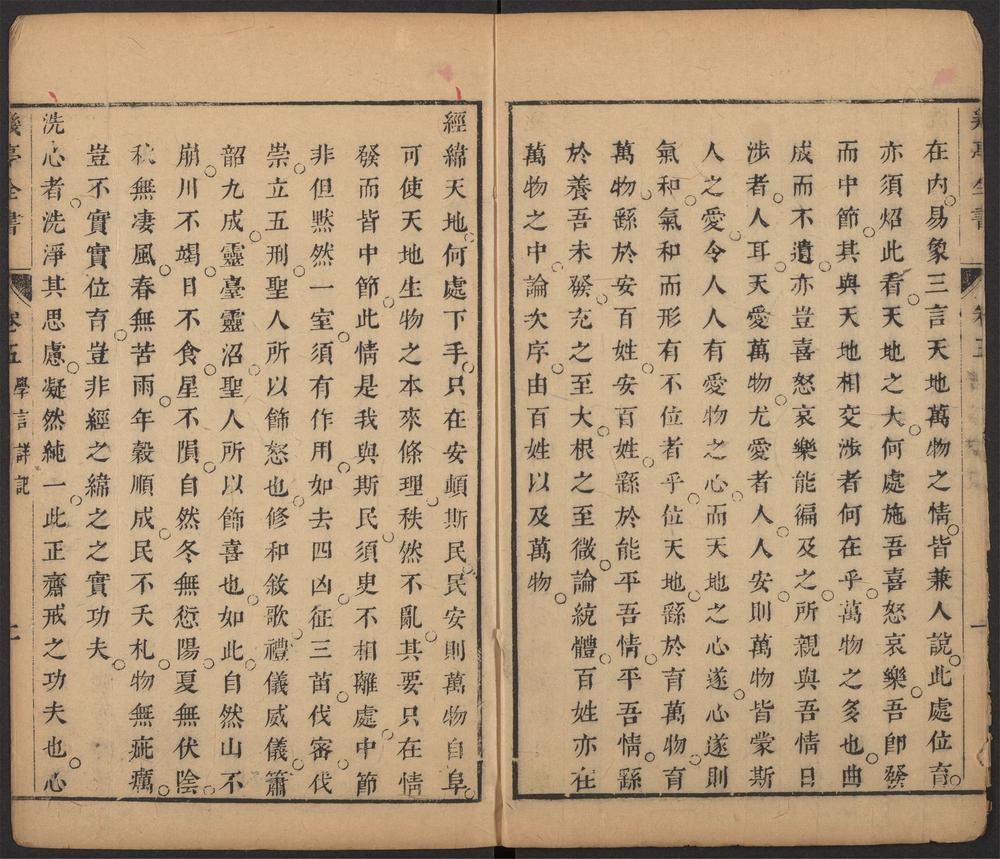 在内易象三言天地萬物之情皆兼人說此處位育
亦須炤此看天地之大何處施吾喜怒哀樂吾卽發
而中節其與天地相交涉者何在乎萬物之多也曲
成而不遺亦豈喜怒哀樂能徧及之所親與吾情日
涉者人耳天愛萬物尤愛者人人安則萬物皆蒙斯
人之愛令人人有愛物之心而天地之心遂心遂則
氣和氣和而形有不位者乎位天地繇於育萬物育
萬物繇於安百姓安百姓繇於能平吾情平吾情繇
於養吾未發充之至大根之至微論統體百姓亦在
萬物之中論次序由百姓以及萬物
經綿天地何處下手只在安頓斯民民安則萬物自阜
可使天地生物之本來條理秩然不亂其要只在情
發而皆中節此情是我與斯民須臾不相離處中節
非但黙然一室須有作用如去四凶征三苗伐崇伐
崇立五刑聖人所以飾怒也修和敘歌禮儀威儀簫
韶九成靈臺靈沼聖人所以飾喜也如此自然山不
崩川不竭日不食星不隕自然冬無愆陽夏無伏陰
秋無凄風春無苦雨年穀順成民不夭札物無疵癘
豈不實實位育豈非經之綿之之實功夫
洗心者洗淨其思慮凝然純一此正齋戒之功夫也心
幾亭全書 卷五 學言詳記 二